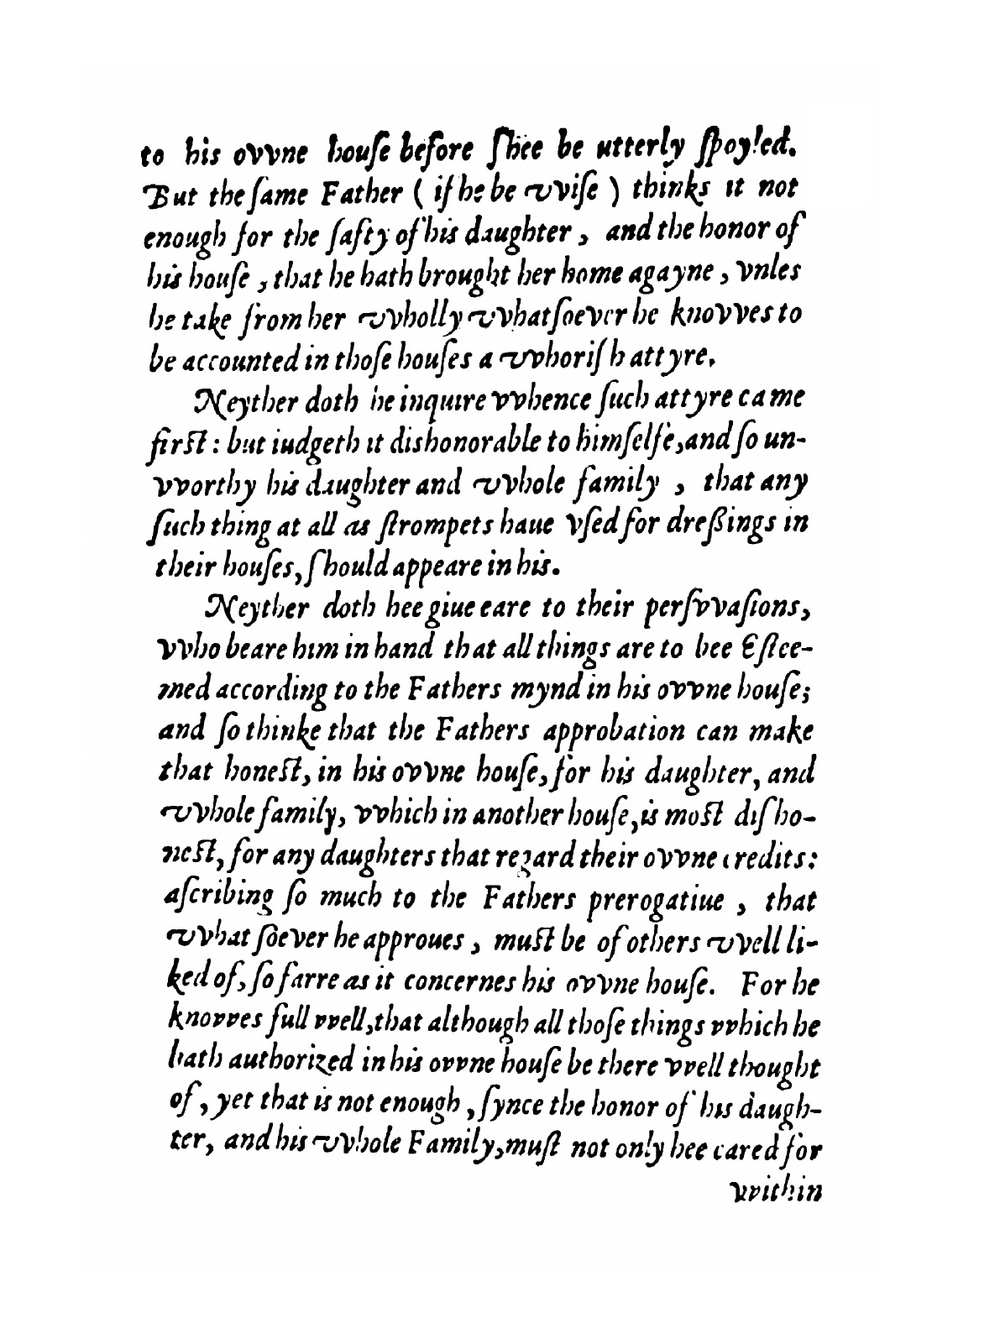 to his ovvne houſe before ſhee be utterly ſpoyled.
But the ſame Father ( if he be vviſe ) thinks it not
enough for the ſafty of his daughter , and the honor of
his houſe , that he hath brought her home agayne , vnles
he take from her vvholly vvhatſoever he knovves to
be accounted in thoſe houſes a vvhoriſh attyre.
Neyther doth he inquire vvhence ſuch attyre came
firſt : but iudgeth it dishonorable to himſelfe, and ſo un-
vvorthy his daughter and vvhole family , that any
ſuch thing at all as ſtrompets haue vſed for dreßings in
their houſes, ſhould appeare in his.
Neyther doth hee giue eare to their perſvvaſions,
vvho beare him in hand that all things are to bee Eſtee-
med according to the Fathers mynd in his ovvne houſe;
and ſo thinke that the Fathers approbation can make
that honeſt, in his ovvne houſe, for his daughter, and
vvhole family, vvhich in another houſe, is moſt diſho-
neſt, for any daughters that regard their ovvne credits:
aſcribing ſo much to the Fathers prerogatiue , that
vvhat ſoever he approues , muſt be of others vvell li-
ked of, ſo farre as it concernes his ovvne houſe. For he
knovves full vvell, that although all thoſe things vvhich he
hath authorized in his ovvne houſe be there vvell thought
of , yet that is not enough , ſynce the honor of his daugh-
ter, and his vvhole Family, muſt not only bee cared for
vvithin